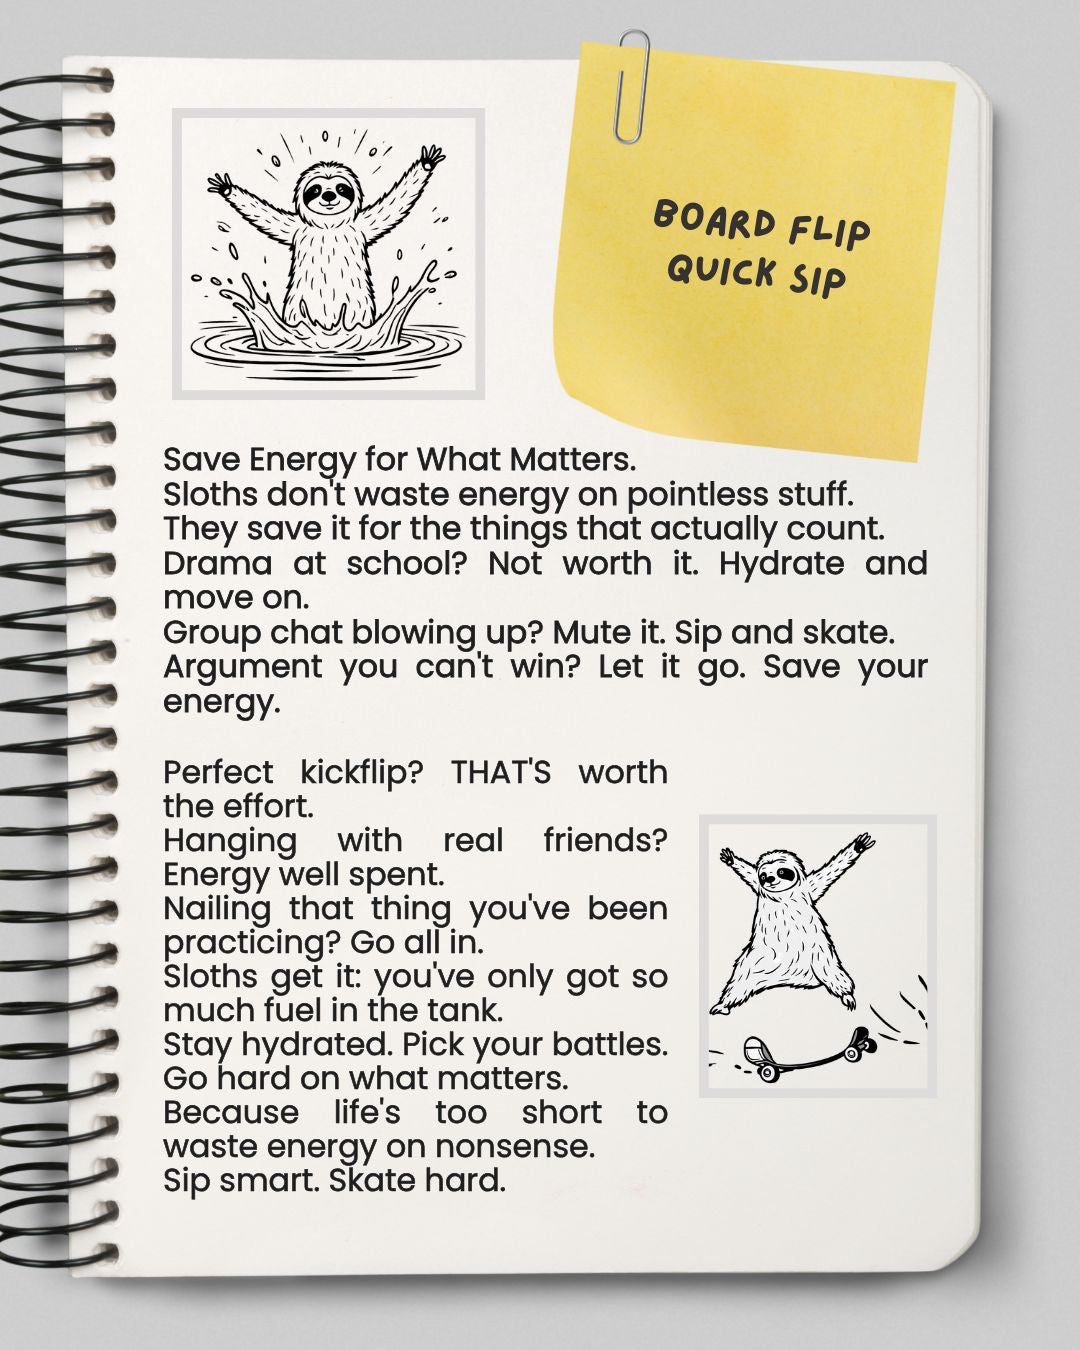 BOARD FLIP
QUICK SIP
Save Energy for What Matters.
Sloths don't waste energy on pointless stuff.
They save it for the things that actually count.
Drama at school? Not worth it. Hydrate and
move on.
Group chat blowing up? Mute it. Sip and skate.
Argument you can't win? Let it go. Save your
energy.
Perfect kickflip? THAT'S worth
the effort.
Hanging with real friends?
Energy well spent.
Nailing that thing you've been
practicing? Go all in.
Sloths get it: you've only got so
much fuel in the tank.
Stay hydrated. Pick your battles.
Go hard on what matters.
Because life's too short to
waste energy on nonsense.
Sip smart. Skate hard.